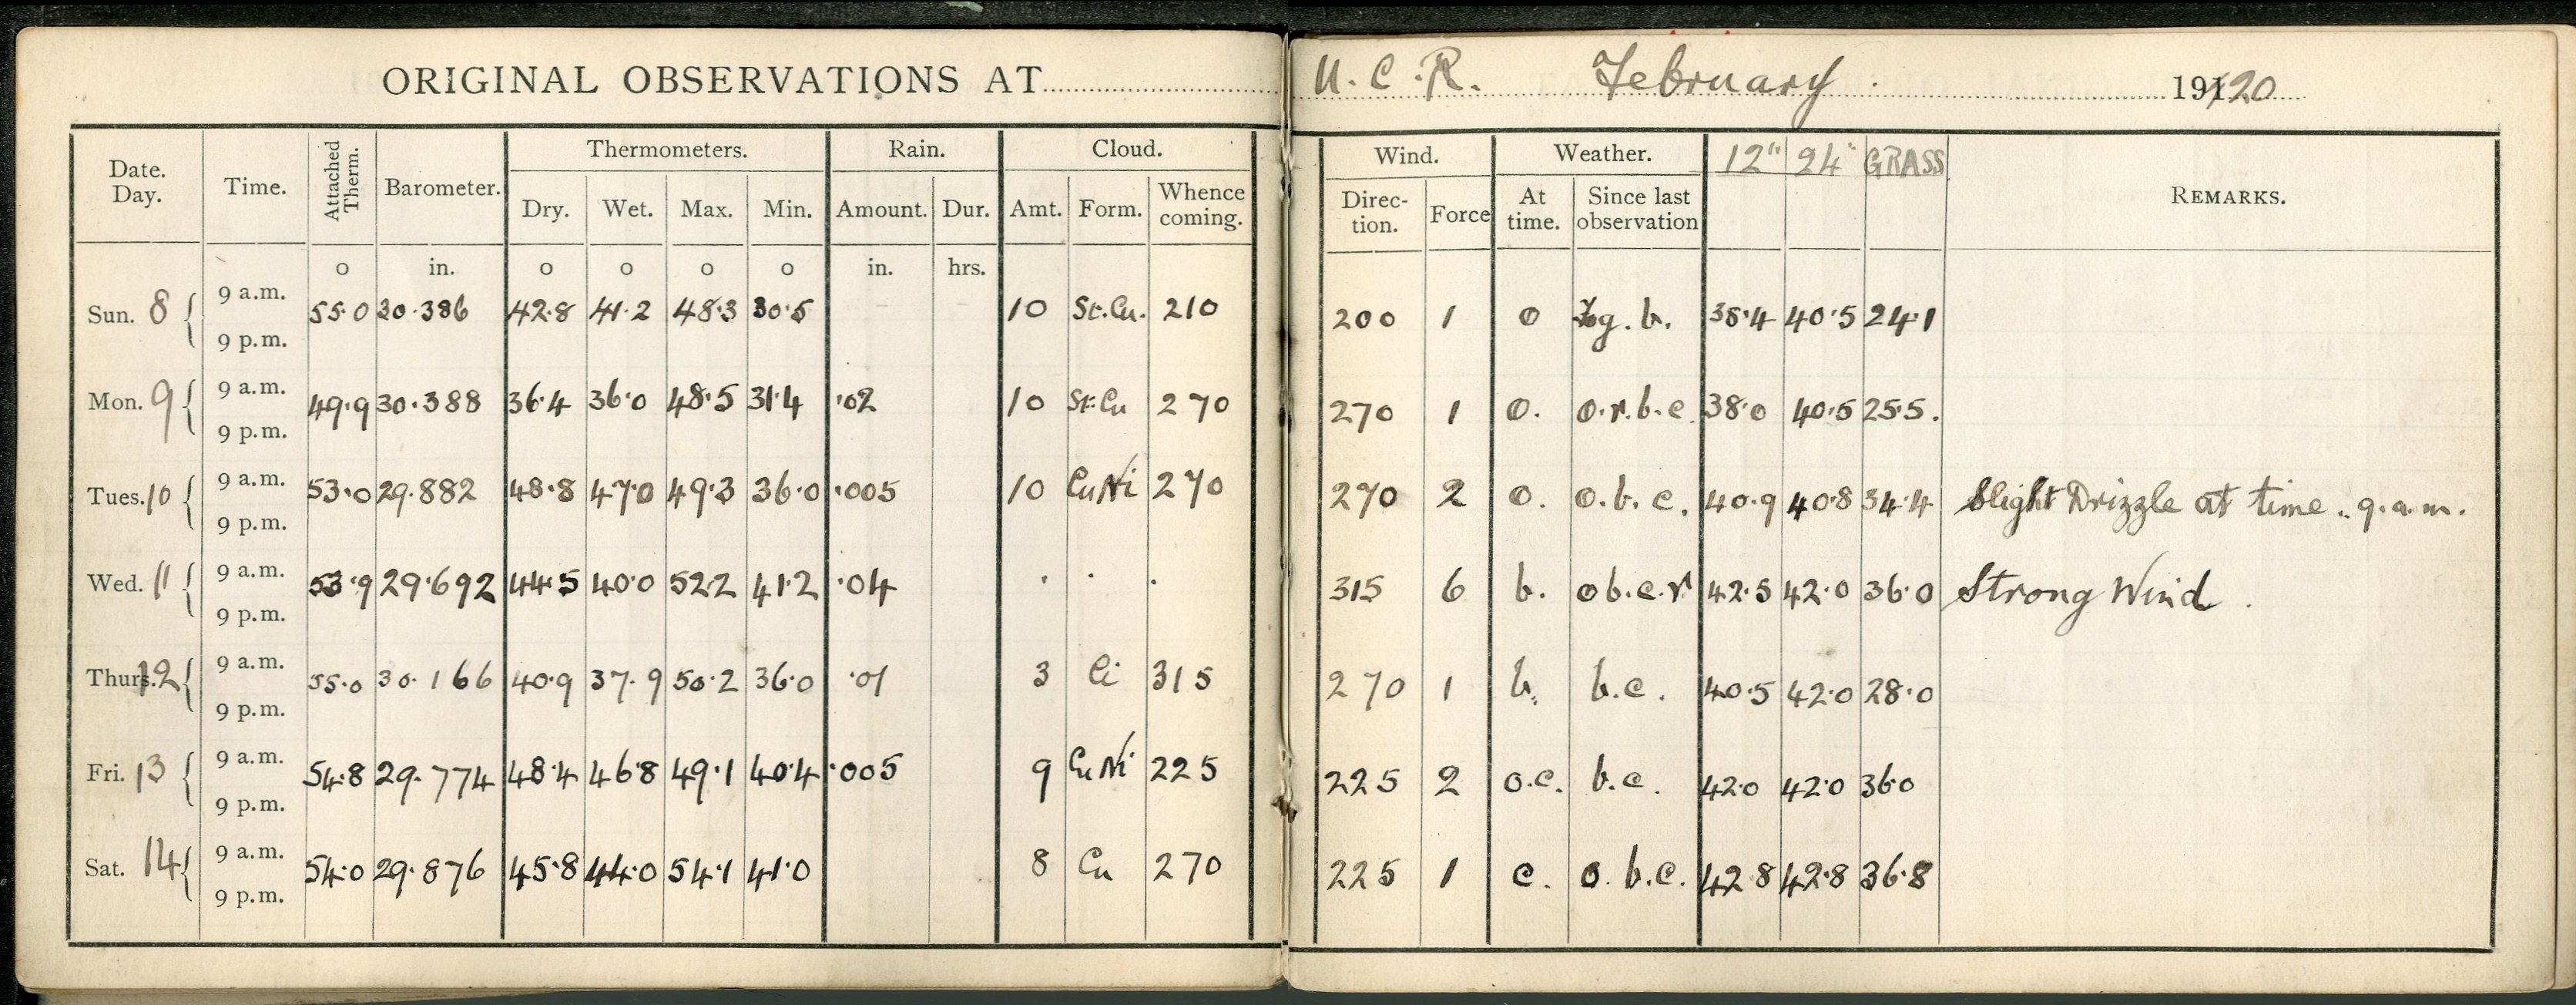 ORIGINAL OBSERVATIONS AT U. C. R. February. 1920
Date. Day. Time. Attached Therm. Barometer. Thermometers. Rain. Cloud. Wind. Weather. 12" 24" GRASS REMARKS.
Dry. Wet. Max. Min. Amount. Dur. Amt. Form. Whence coming. Direction. Force At time. Since last observation
o in. o o o o in. hrs.
Sun. 8 9 a.m. 55.0 30.386 42.8 41.2 48.3 30.5 10 St.Cu. 210 200 1 o g. b. 38.4 40.5 24.1
9 p.m.
Mon. 9 9 a.m. 49.9 30.388 36.4 36.0 48.5 31.4 .02 10 St.Cu 270 270 1 o. o.r.b.c. 38.0 40.5 25.5.
9 p.m.
Tues. 10 9 a.m. 53.0 29.882 48.8 47.0 49.3 36.0 .005 10 CuNi 270 270 2 o. o.b.c. 40.9 40.8 34.4 Slight Drizzle at time. 9.a.m.
9 p.m.
Wed. 11 9 a.m. 53.9 29.692 44.5 40.0 52.2 41.2 .04 . . . 315 6 b. o b.c.r 42.5 42.0 36.0 Strong Wind.
9 p.m.
Thurs. 12 9 a.m. 55.0 30.166 40.9 37.9 50.2 36.0 .01 3 Ci 315 270 1 b. b.c. 40.5 42.0 28.0
9 p.m.
Fri. 13 9 a.m. 54.8 29.774 48.4 46.8 49.1 40.4 .005 9 CuNi 225 225 2 o.c. b.c. 42.0 42.0 36.0
9 p.m.
Sat. 14 9 a.m. 54.0 29.876 45.8 44.0 54.1 41.0 8 Cu 270 225 1 c. o. b.c. 42.8 42.8 36.8
9 p.m.